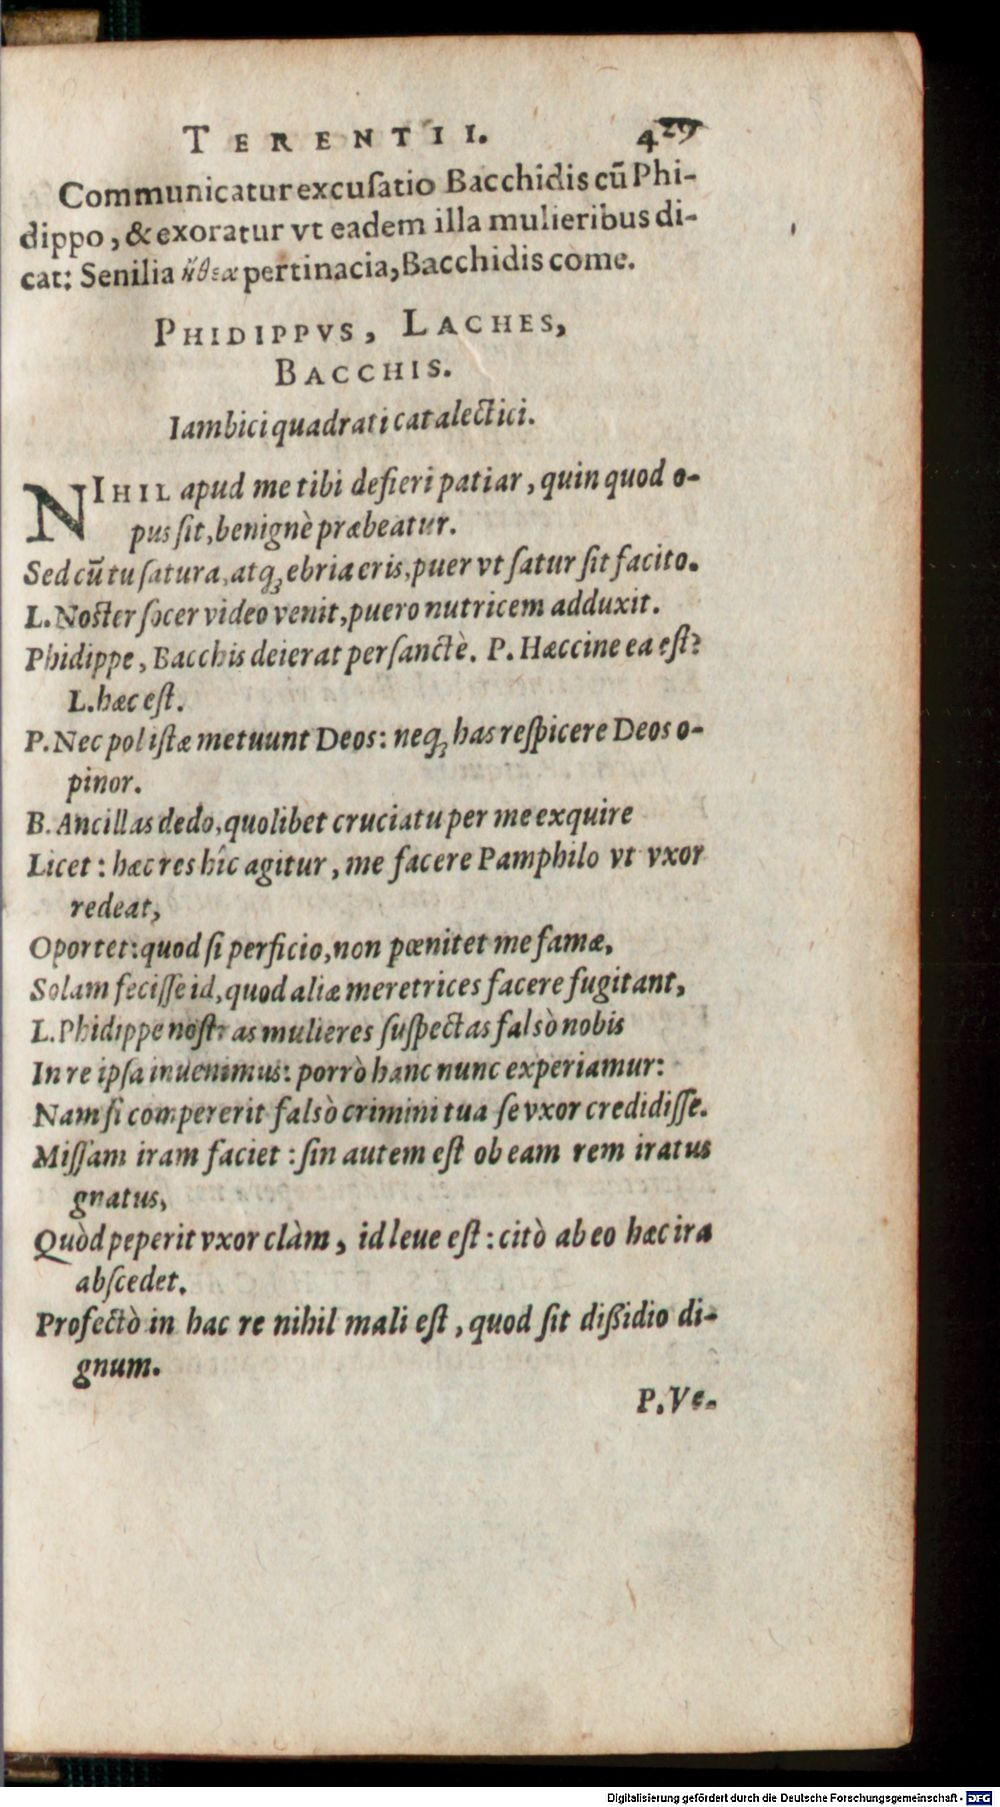 TERENTII. 429
Communicatur excuſatio Bacchidis cũ Phi-
dippo, & exoratur vt eadem illa mulieribus di-
cat: Senilia ἤθεα pertinacia, Bacchidis come.
PHIDIPPVS, LACHES,
BACCHIS.
Iambici quadrati catalectici.
NIHIL apud me tibi defieri patiar, quin quod o-
pus ſit, benignè præbeatur.
Sed cũ tu ſatura, atq; ebria eris, puer vt ſatur ſit facito.
L. Noſter ſocer video venit, puero nutricem adduxit.
Phidippe, Bacchis deierat perſanctè. P. Hæccine ea eſt?
L. hæc eſt.
P. Nec pol iſtæ metuunt Deos: neq; has reſpicere Deos o-
pinor.
B. Ancillas dedo, quolibet cruciatu per me exquire
Licet: hæc res hîc agitur, me facere Pamphilo vt vxor
redeat,
Oportet: quod ſi perficio, non pœnitet me famæ,
Solam feciſſe id, quod aliæ meretrices facere fugitant,
L. Phidippe noſtras mulieres ſuſpectas falsò nobis
In re ipſa inuenimus: porrò hanc nunc experiamur:
Nam ſi compererit falsò crimini tua ſe vxor credidiſſe.
Miſſam iram faciet: ſin autem eſt ob eam rem iratus
gnatus,
Quòd peperit vxor clàm, id leue eſt: citò ab eo hæc ira
abſcedet.
Profectò in hac re nihil mali eſt, quod ſit dißidio di-
gnum.
P. Ve-
Digitalisierung gefördert durch die Deutsche Forschungsgemeinschaft - DFG